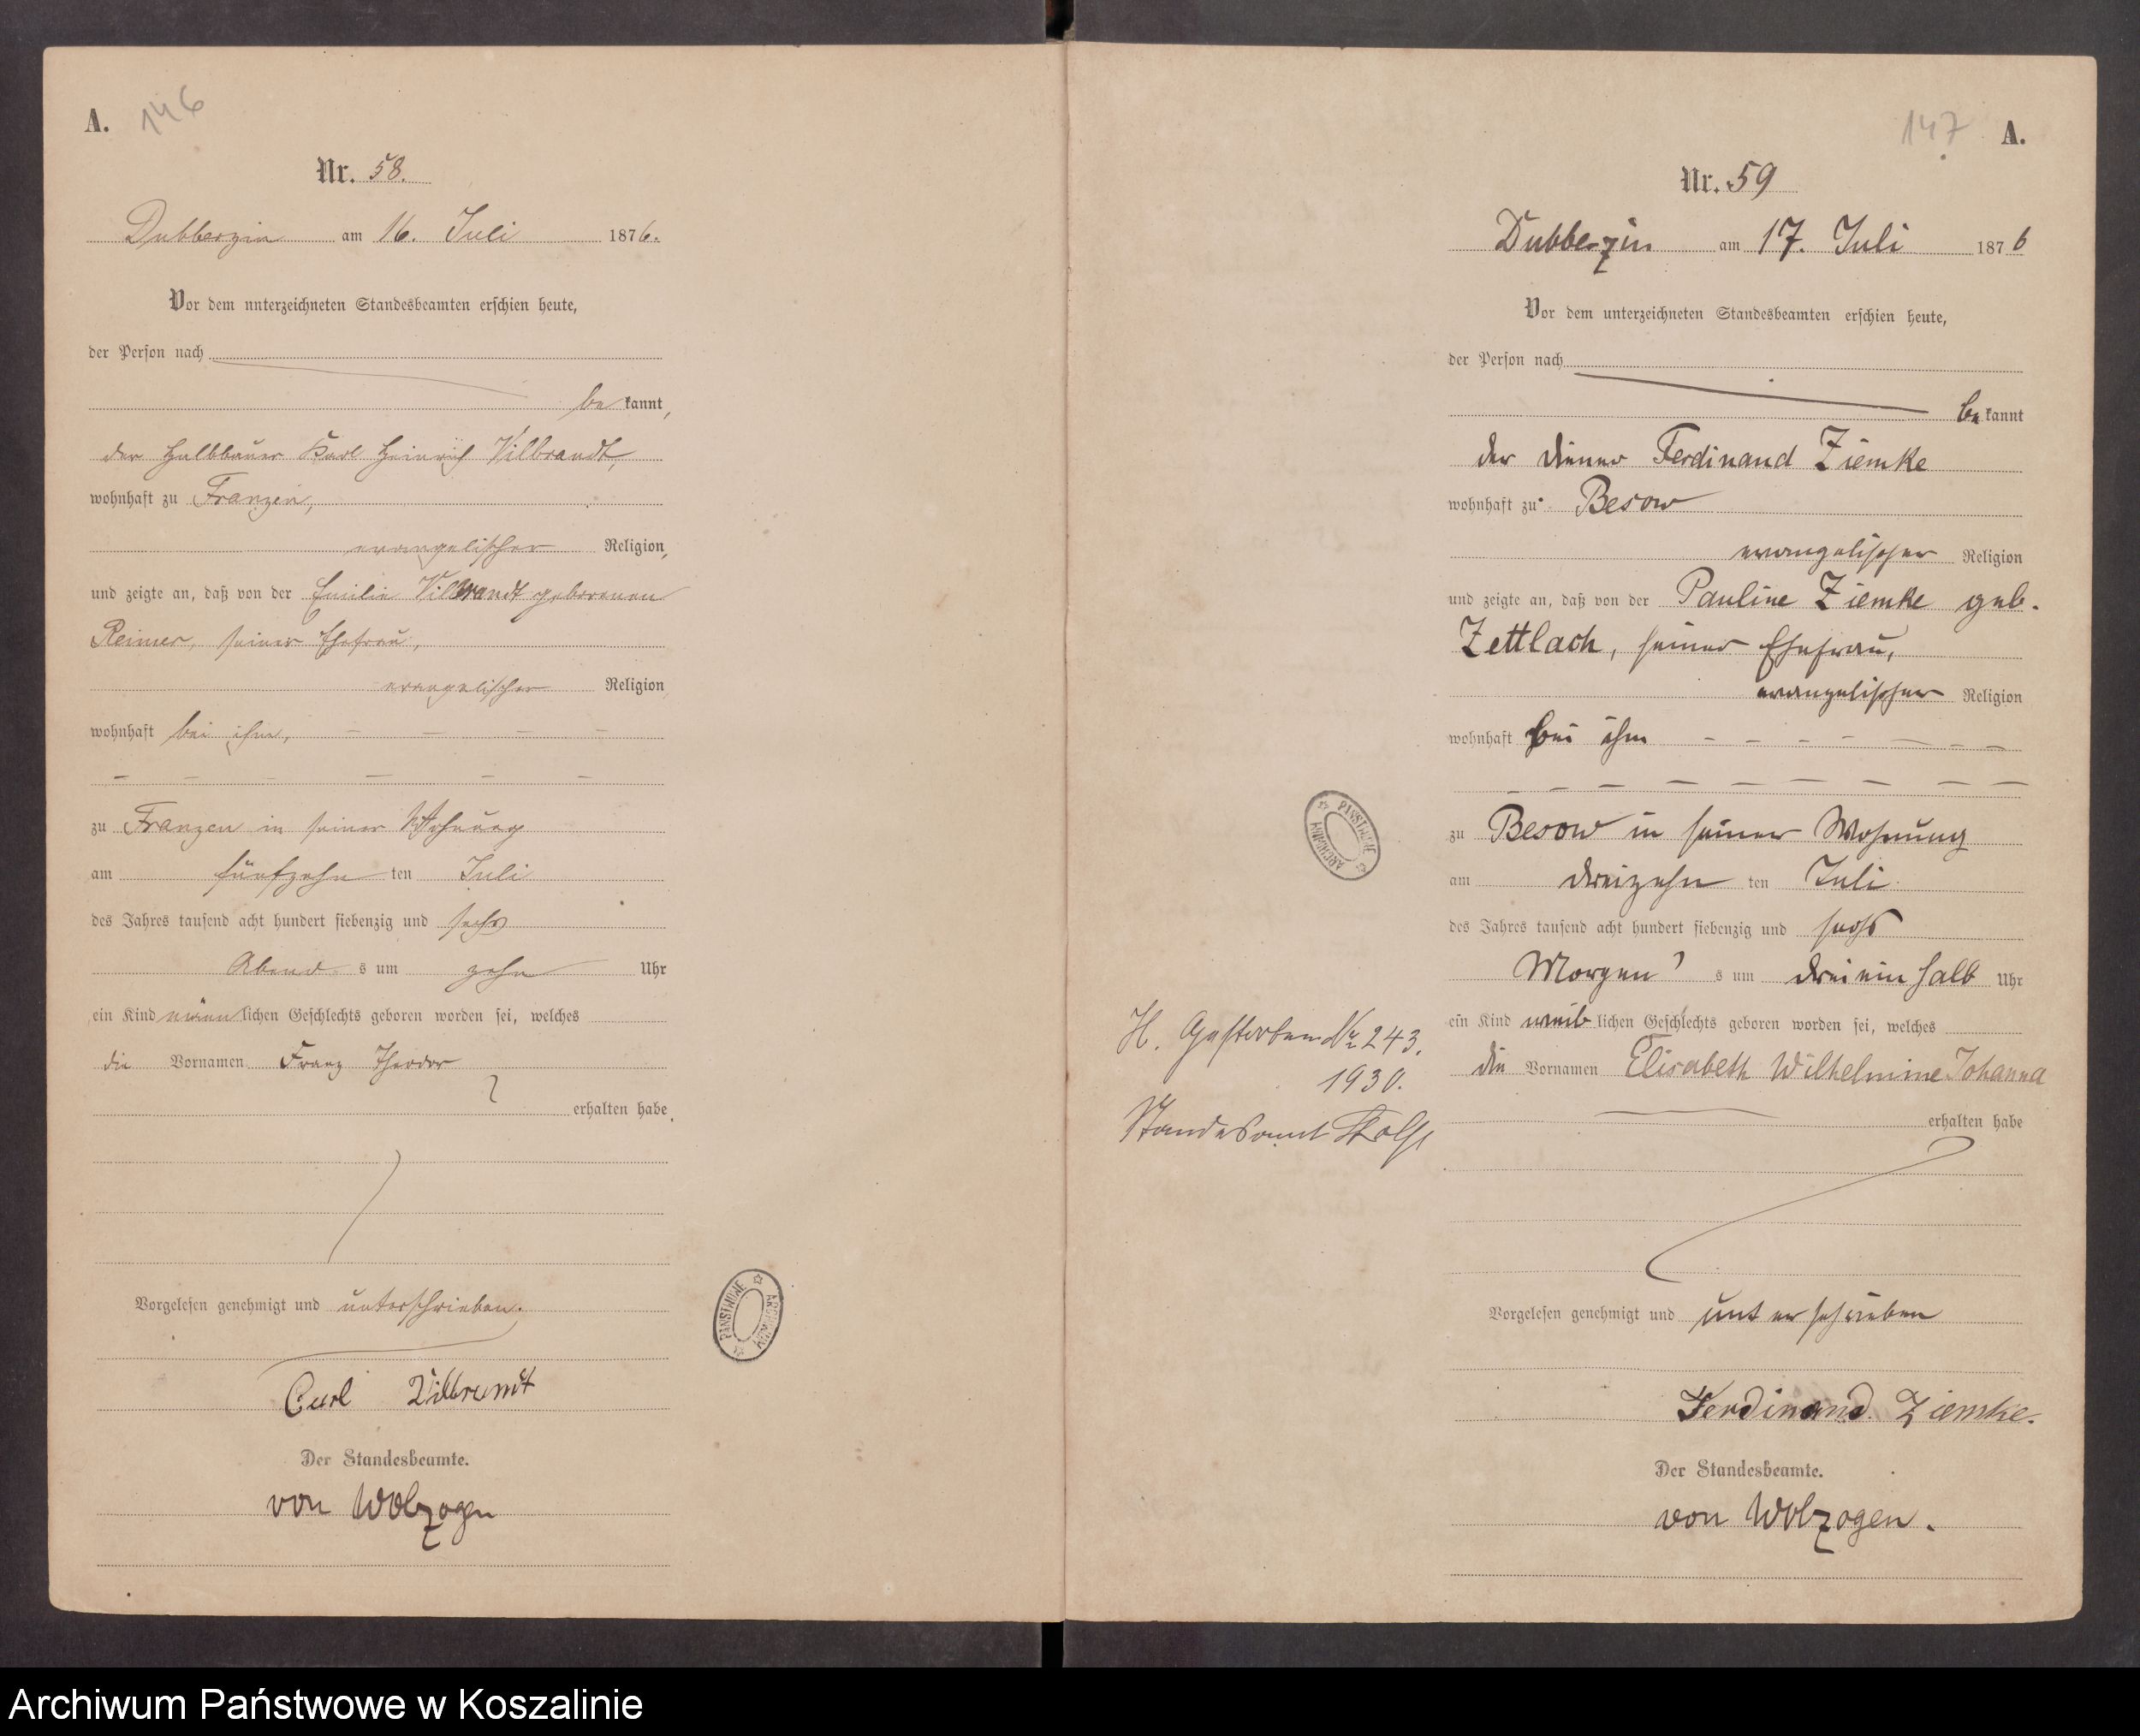 A. 146
Nr. 58.
Dubberzin am 16. Juli 1876.
Vor dem unterzeichneten Standesbeamten erschien heute,
der Person nach
be kannt,
der Halbbauer Karl Heinrich Vilbrandt,
wohnhaft zu Franzen,
evangelischer Religion,
und zeigte an, daß von der Emilie Vilbrandt geborenen
Reimer, seiner Ehefrau,
evangelischer Religion,
wohnhaft bei ihm, – – – –
– – – – – –
zu Franzen in seiner Wohnung
am fünfzehn ten Juli
des Jahres tausend acht hundert siebenzig und sechs
Abend s um zehn Uhr
ein Kind männ lichen Geschlechts geboren worden sei, welches
die Vornamen Franz Theodor
erhalten habe.
Vorgelesen genehmigt und unterschrieben.
Carl Vilbrandt
Der Standesbeamte.
von Wolzogen
PAŃSTWOWE ARCHIWUM
147 A.
Nr. 59
Dubberzin am 17. Juli 1876
Vor dem unterzeichneten Standesbeamten erschien heute,
der Person nach
be kannt
der Diener Ferdinand Ziemke
wohnhaft zu Besow
evangelischer Religion
und zeigte an, daß von der Pauline Ziemke geb.
Zettlach, seiner Ehefrau,
evangelischer Religion
wohnhaft bei ihm – – – – – – –
– – – – – – – – –
zu Besow in seiner Wohnung
am dreizehn ten Juli
des Jahres tausend acht hundert siebenzig und sechs
Morgen s um dreieinhalb Uhr
ein Kind weib lichen Geschlechts geboren worden sei, welches
die Vornamen Elisabeth Wilhelmine Johanna
erhalten habe
Vorgelesen genehmigt und unterschrieben
Ferdinand Ziemke.
Der Standesbeamte.
von Wolzogen.
H. Gestorben No 243.
1930.
Standesamt Stolp
PAŃSTWOWE ARCHIWUM
Archiwum Państwowe w Koszalinie